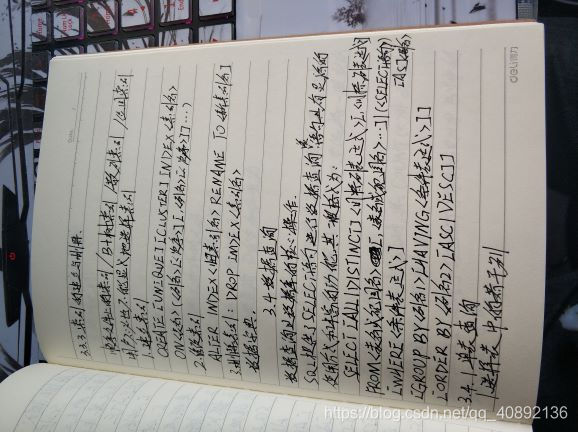 3.3.3 索引的建立与删除
顺序文件上的索引/B+树索引/散列索引/位图索引
用户不必也不能显式地选择索引
1.建立索引
CREATE [UNIQUE] [CLUSTER] INDEX <索引名>
ON <表名> (<列名> [<次序>] [, <列名> [<次序>]] ...)
2.修改索引
ALTER INDEX <旧索引名> RENAME TO <新索引名>
3.删除索引: DROP INDEX <索引名>
数据字典
3.4 数据查询
数据查询是数据库的核心操作。
SQL提供了SELECT语句进行数据查询,
SELECT [ALL|DISTINCT] <目标列表达式> [, <目标列表达式>]
FROM <表名或视图名> [, <表名或视图名> ...] | (<SELECT语句>) [AS] <别名>
[WHERE <条件表达式>]
[GROUP BY <列名> [HAVING <条件表达式>]]
[ORDER BY <列名> [ASC|VESC]]
3.4.1 单表查询
1.选择表中的若干列
deli得力
Date
https://blog.csdn.net/qq_40892136